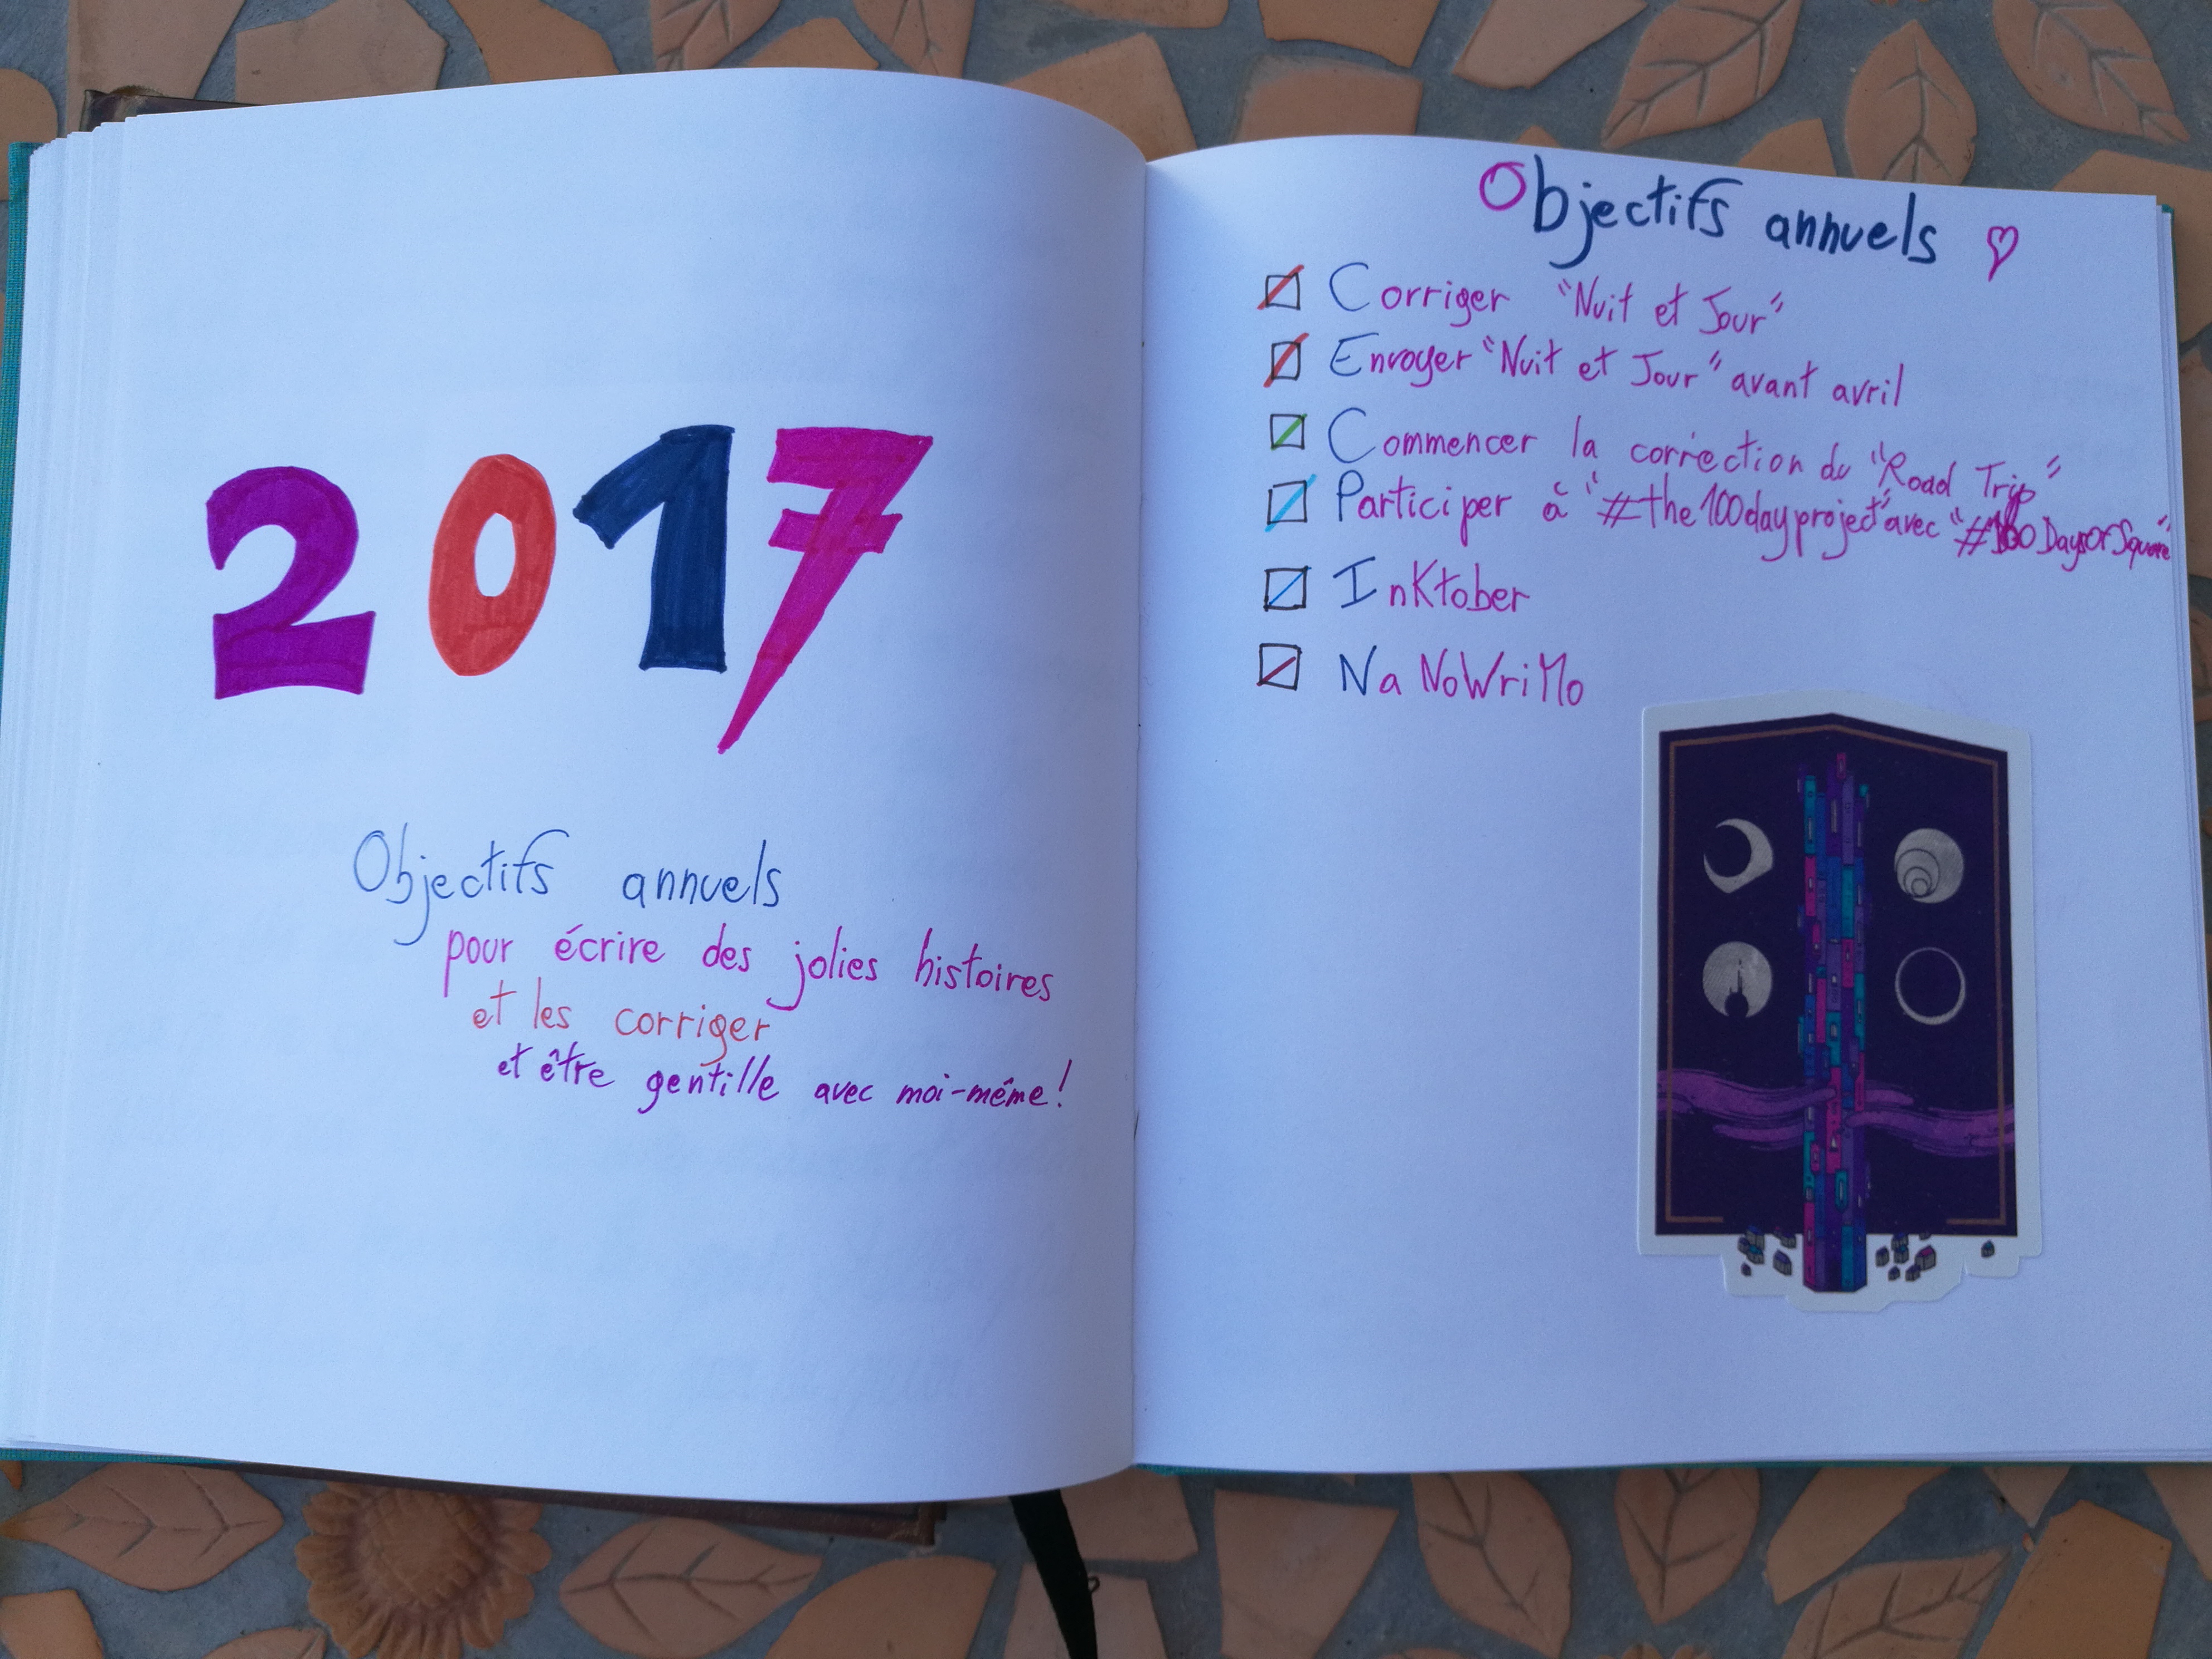 2017
Objectifs annuels
pour écrire des jolies histoires
et les corriger
et être gentille avec moi-même!
Objectifs annuels
Corriger "Nuit et Jour"
Envoyer "Nuit et Jour" avant avril
Commencer la correction du "Road Trip"
Participer à "#the100dayproject" avec "#100DaysOfSquare"
InKtober
NaNoWriMo